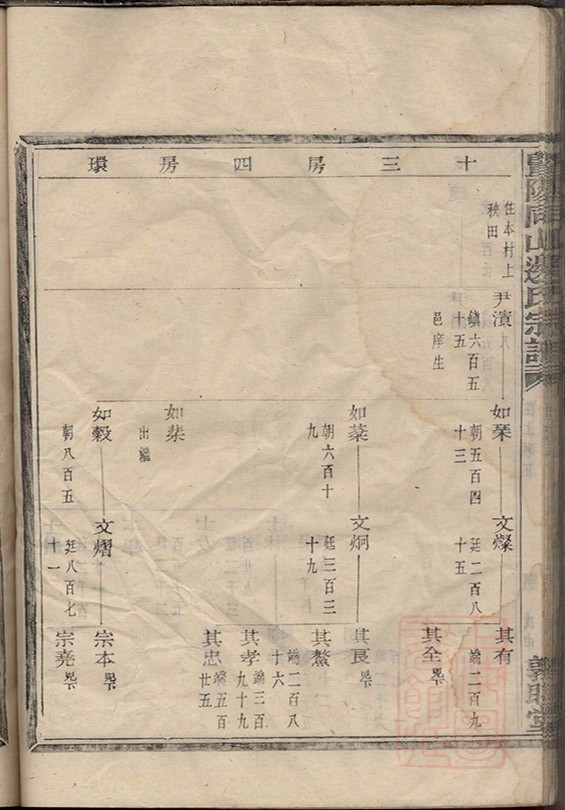 暨陽同山邊氏宗譜
敦睦堂
十三房四房環
住本村上
秧田
尹濱
鎮六百五
十五
邑庠生
如琹
朝五百四
十三
文燦
廷二百八
十五
其有
端二百九
其全
如棻
朝六百十
九
文炯
廷三百三
十九
其良
其鰲
端二百八
十六
其孝
端三百
九十九
其忠
端五百
廿五
如棐
出繼
如穀
朝八百五
文熠
廷八百七
十一
宗本
宗堯